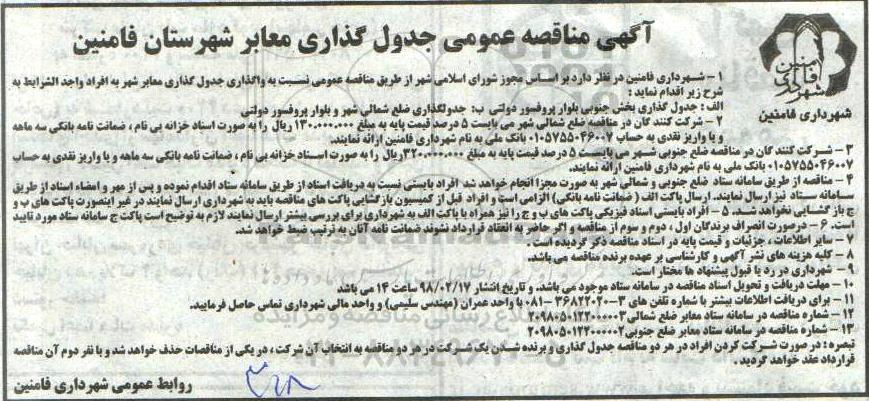 آگهی مناقصه عمومی جدول گذاری معابر شهرستان فامنین
شهرداری فامنین
۱ - شهرداری فامنین در نظر دارد بر اساس مجوز شورای اسلامی شهر از طریق مناقصه عمومی نسبت به واگذاری جدول گذاری معابر شهر به افراد واجد الشرایط به
شرح زیر اقدام نماید :
الف : جدول گذاری بخش جنوبی بلوار پروفسور دولتی ب: جدولگذاری ضلع شمالی شهر و بلوار پروفسور دولتی
۲ – شرکت کنند گان در مناقصه ضلع شمالی شهر می بایست ۵ درصد قیمت پایه به مبلغ ۱۳۰.۰۰۰.۰۰۰ ریال را به صورت اسناد خزانه بی نام ، ضمانت نامه بانکی سه ماهه
و یا واریز نقدی به حساب ۰۱۰۵۷۵۵۰۴۶۰۰۷ بانک ملی به نام شهرداری فامنین ارائه نمایند.
۳ – شرکت کنند گان در مناقصه ضلع جنوبی شهر می بایست ۵ درصد قیمت پایه به مبلغ ۳۲۰.۰۰۰.۰۰۰ریال را به صورت اسناد خزانه بی نام ، ضمانت نامه بانکی سه ماهه و یا واریز نقدی به حساب
۰۱۰۵۷۵۵۰۴۶۰۰۷ بانک ملی به نام شهرداری فامنین ارائه نمایند.
۴ – مناقصه از طریق سامانه ستاد ضلع جنوبی و شمالی شهر به صورت مجزا انجام خواهد شد افراد بایستی نسبت به دریافت اسناد از طریق سامانه ستاد اقدام نموده و پس از مهر و امضاء اسناد از طریق
سامانه ستاد نیز ارسال نمایند. ارسال پاکت الف ( ضمانت نامه بانکی) الزامی است و افراد قبل از کمیسیون بازگشایی پاکت های مناقصه باید به شهرداری ارسال نمایند در غیر اینصورت پاکت های ب و
ج باز گشایی نخواهد شد. ۵ – افراد بایستی اسناد فیزیکی پاکت های ب و ج را نیز همراه با پاکت الف به شهرداری برای بررسی بیشتر ارسال نمایند لازم به توضیح است پاکت ج سامانه ستاد مورد تایید
است. ۶ – درصورت انصراف برندگان اول ، دوم و سوم از مناقصه و اگر حاضر به انعقاد قرارداد نشوند ضمانت نامه آنان به ترتیب ضبط خواهد شد.
۷ – سایر اطلاعات ، جزئیات و قیمت پایه در اسناد مناقصه ذکر گردیده است.
۸ – کلیه هزینه های نشر آگهی و کارشناسی بر عهده برنده مناقصه می باشد.
۹ – شهرداری در رد یا قبول پیشنهاد ها مختار است.
۱۰ – مهلت دریافت و تحویل اسناد مناقصه در سامانه ستاد موجود می باشد. و تاریخ انتشار ۹۸/۰۲/۱۷ ساعت ۱۴ می باشد
۱۱ – برای دریافت اطلاعات بیشتر با شماره تلفن های ۳-۳۶۸۲۲۰۲۰-۰۸۱ با واحد عمران (مهندس سلیمی) و واحد مالی شهرداری تماس حاصل فرمایید.
۱۲ – شماره مناقصه در سامانه ستاد معابر ضلع شمالی ۲۰۹۸۰۵۰۱۲۲۰۰۰۰۰۳
۱۳ – شماره مناقصه در سامانه ستاد معابر ضلع جنوبی ۲۰۹۸۰۵۰۱۲۲۰۰۰۰۰۲
تبصره : در صورت شرکت کردن افراد در هر دو مناقصه جدول گذاری و برنده شدن یک شرکت در هر دو مناقصه به انتخاب آن شرکت ، در یکی از مناقصات حذف خواهد شد و با نفر دوم آن مناقصه
قرارداد عقد خواهد گردید .
روابط عمومی شهرداری فامنین